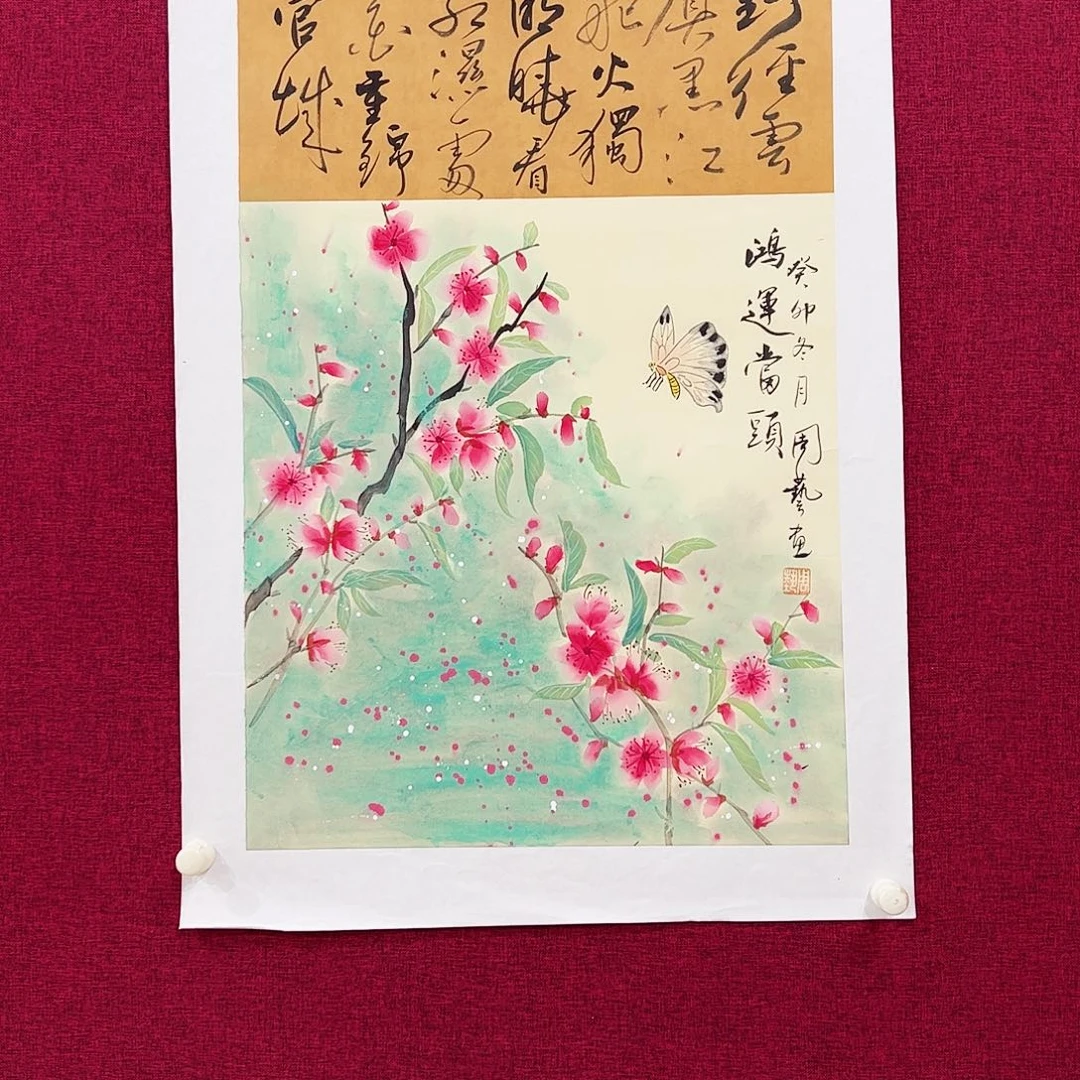 野徑雲
俱黑江
船火獨
明曉看
紅濕處
花重錦
官城
鴻運當頭
癸卯冬月周藝画